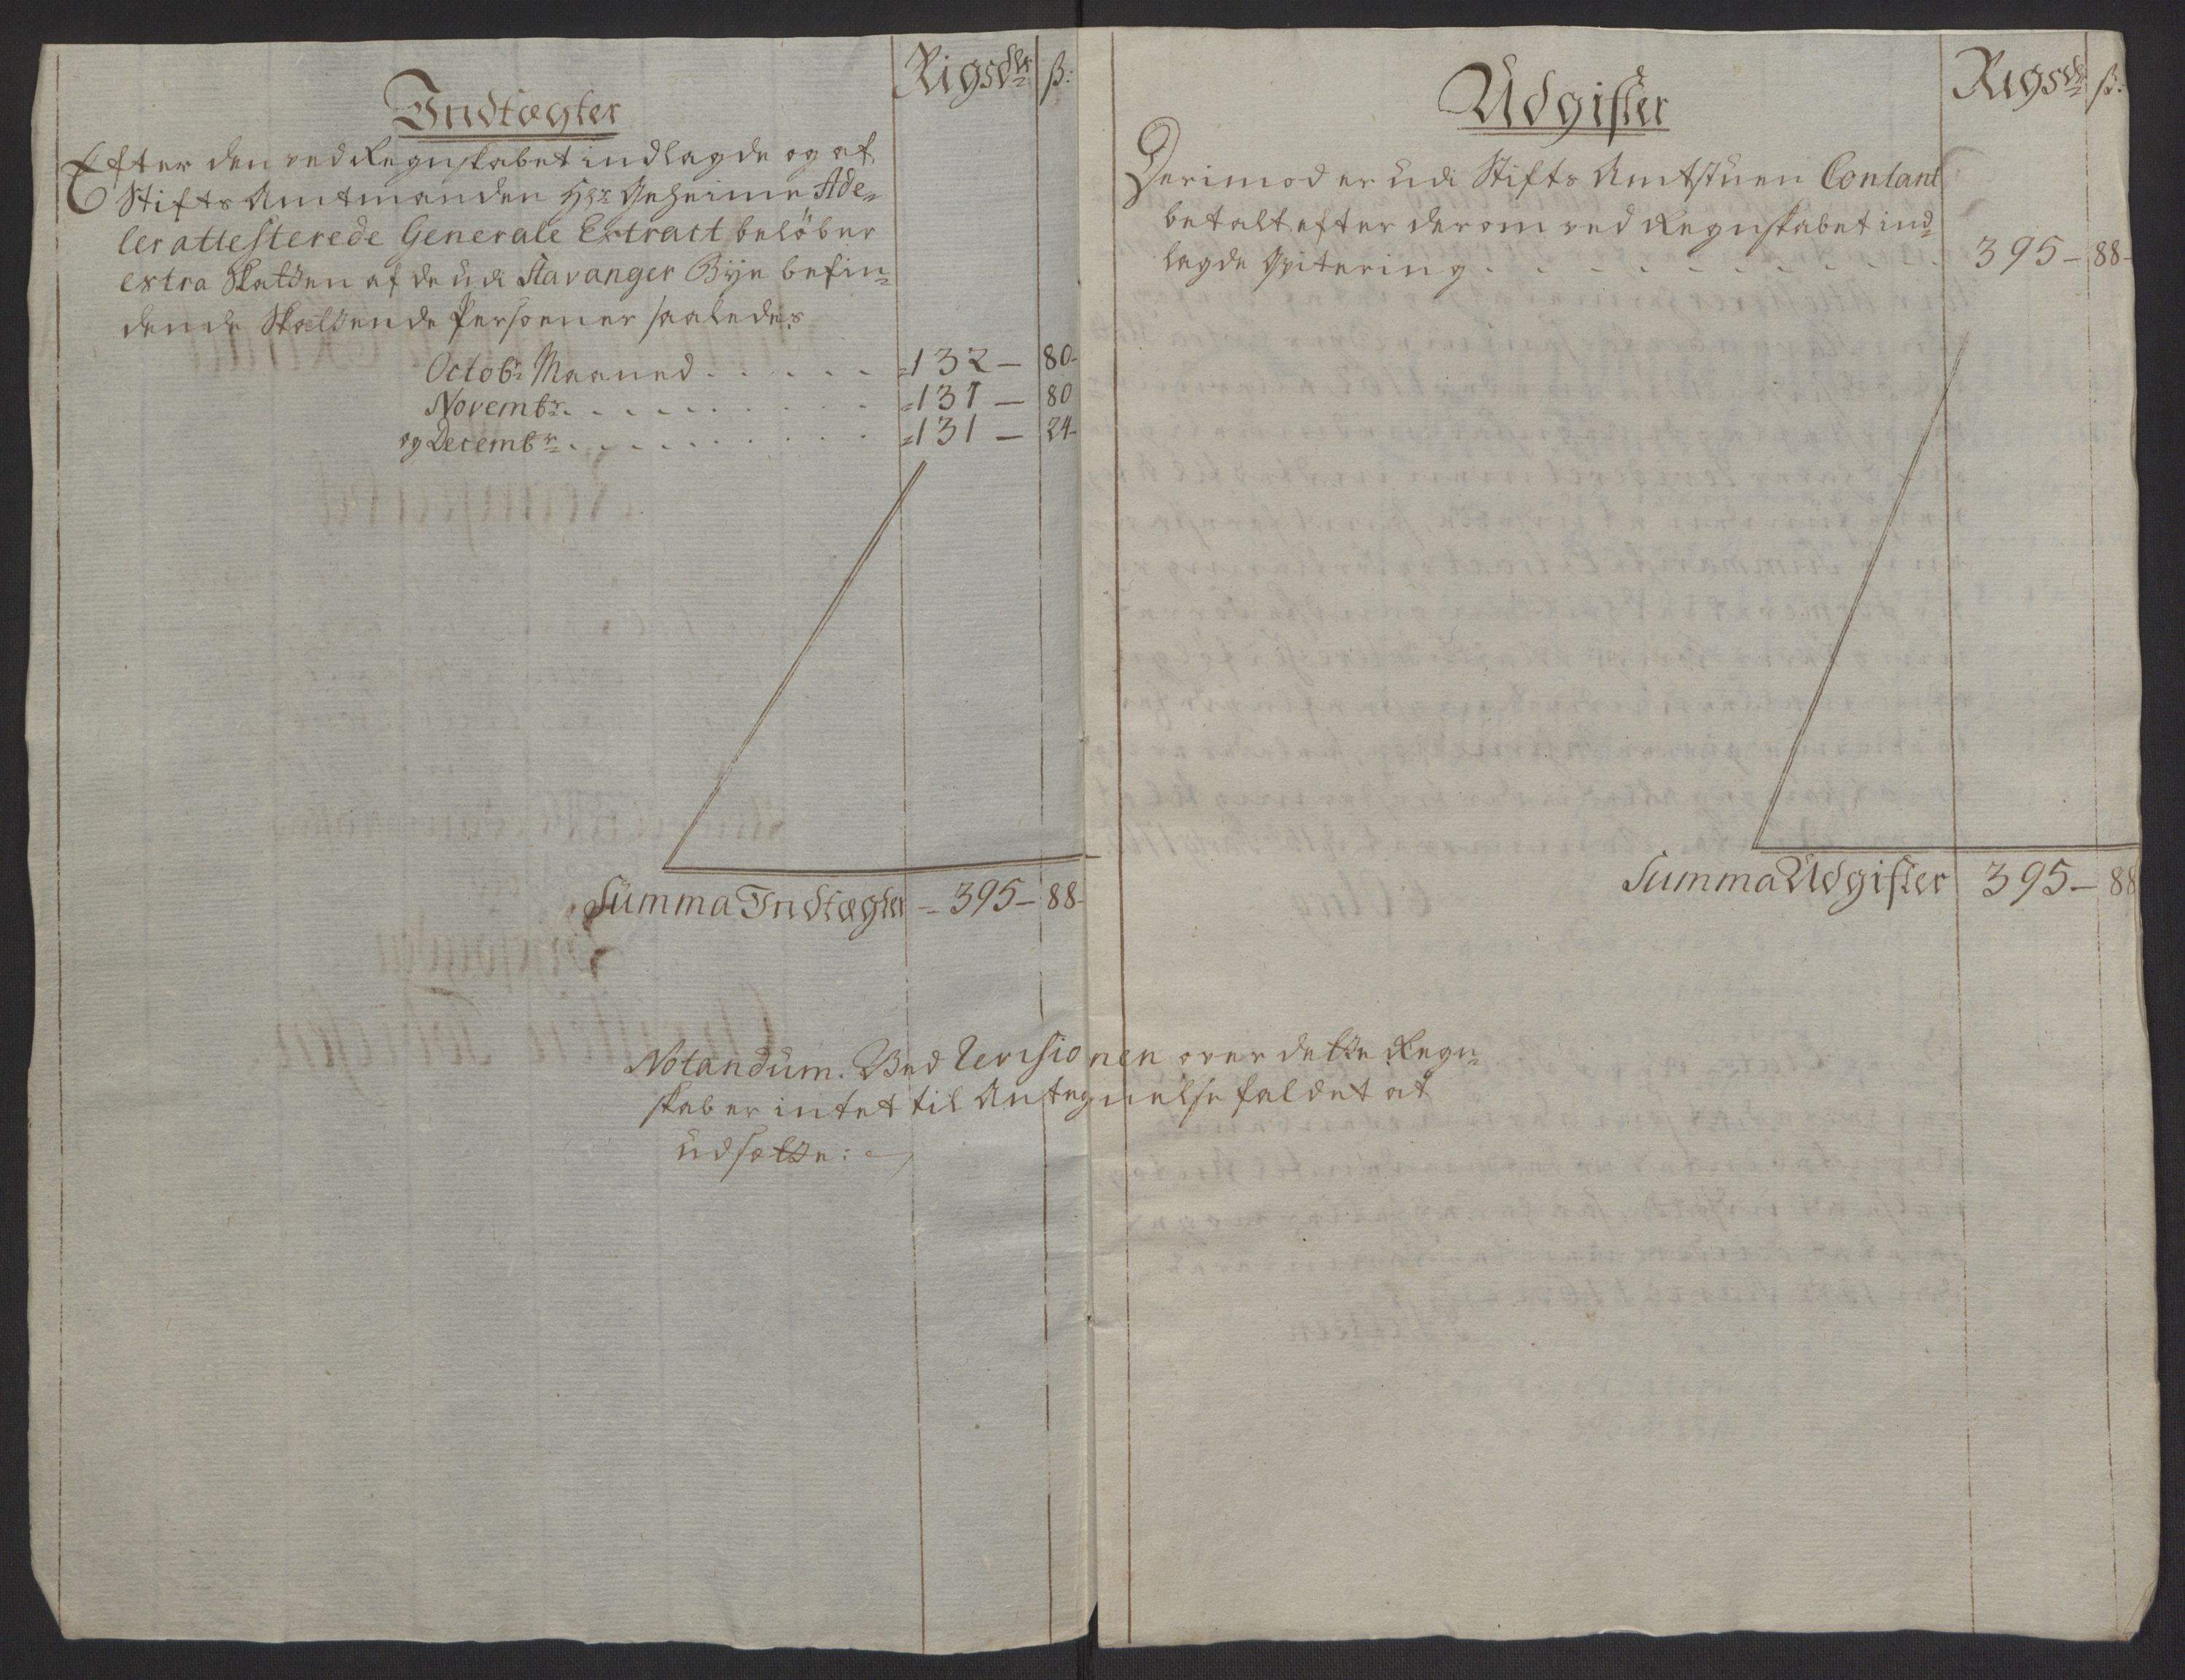 Indtægter
Rigsdlr ß:
Efter den ved Regnskabet indlagde og af
Stifts Amtmanden Hr: Geheime Ade-
ler attesterede Generale Extract beløber
extra Skatten af de udi Stavanger Bÿe befin-
dende Skattende Persoener saaledes
Octobr: Maaned . . . . . 132 — 80-
Novembr: . . . . . . . . . 131 — 80
og Decembr: . . . . . . . . . 131 — 24-
Summa Indtægter — 395 — 88-
Udgifter
Rigsdr ß:
Derimod er udi Stifts Amtstuen Contant
betalt efter derom ved Regnskabet ind-
lagde Qvitering . . . . . . . . . 395 — 88-
Summa Udgifter 395 — 88
Notandum. Ved Revisionen over dette Regn-
skab er intet til Antegnelse faldet at
udsætte: